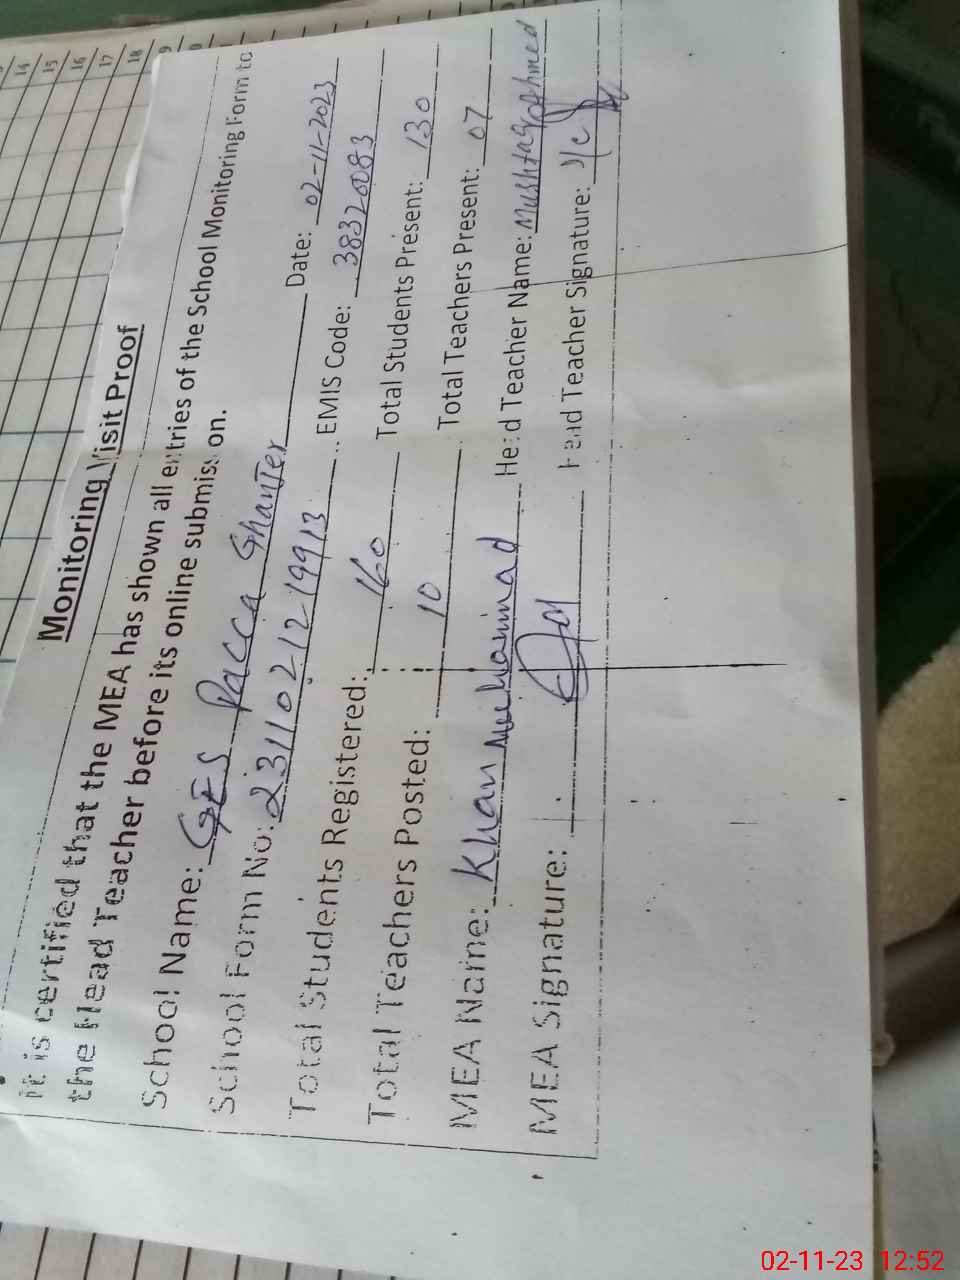 14
15
16
17
18
9
Monitoring Visit Proof
It is certified that the MEA has shown all entries of the School Monitoring Form to
the Head Teacher before its online submission.
School Name: GES Pacca Ghanjer Date: 02-11-2023
School Form No: 2311021219913 EMIS Code: 38320083
Total Students Registered: 160 Total Students Present: 130
Total Teachers Posted: 10 Total Teachers Present: 07
MEA Name: Khan Muhammad Head Teacher Name: Mushtaq Ahmed
MEA Signature: Head Teacher Signature:
02-11-23 12:52